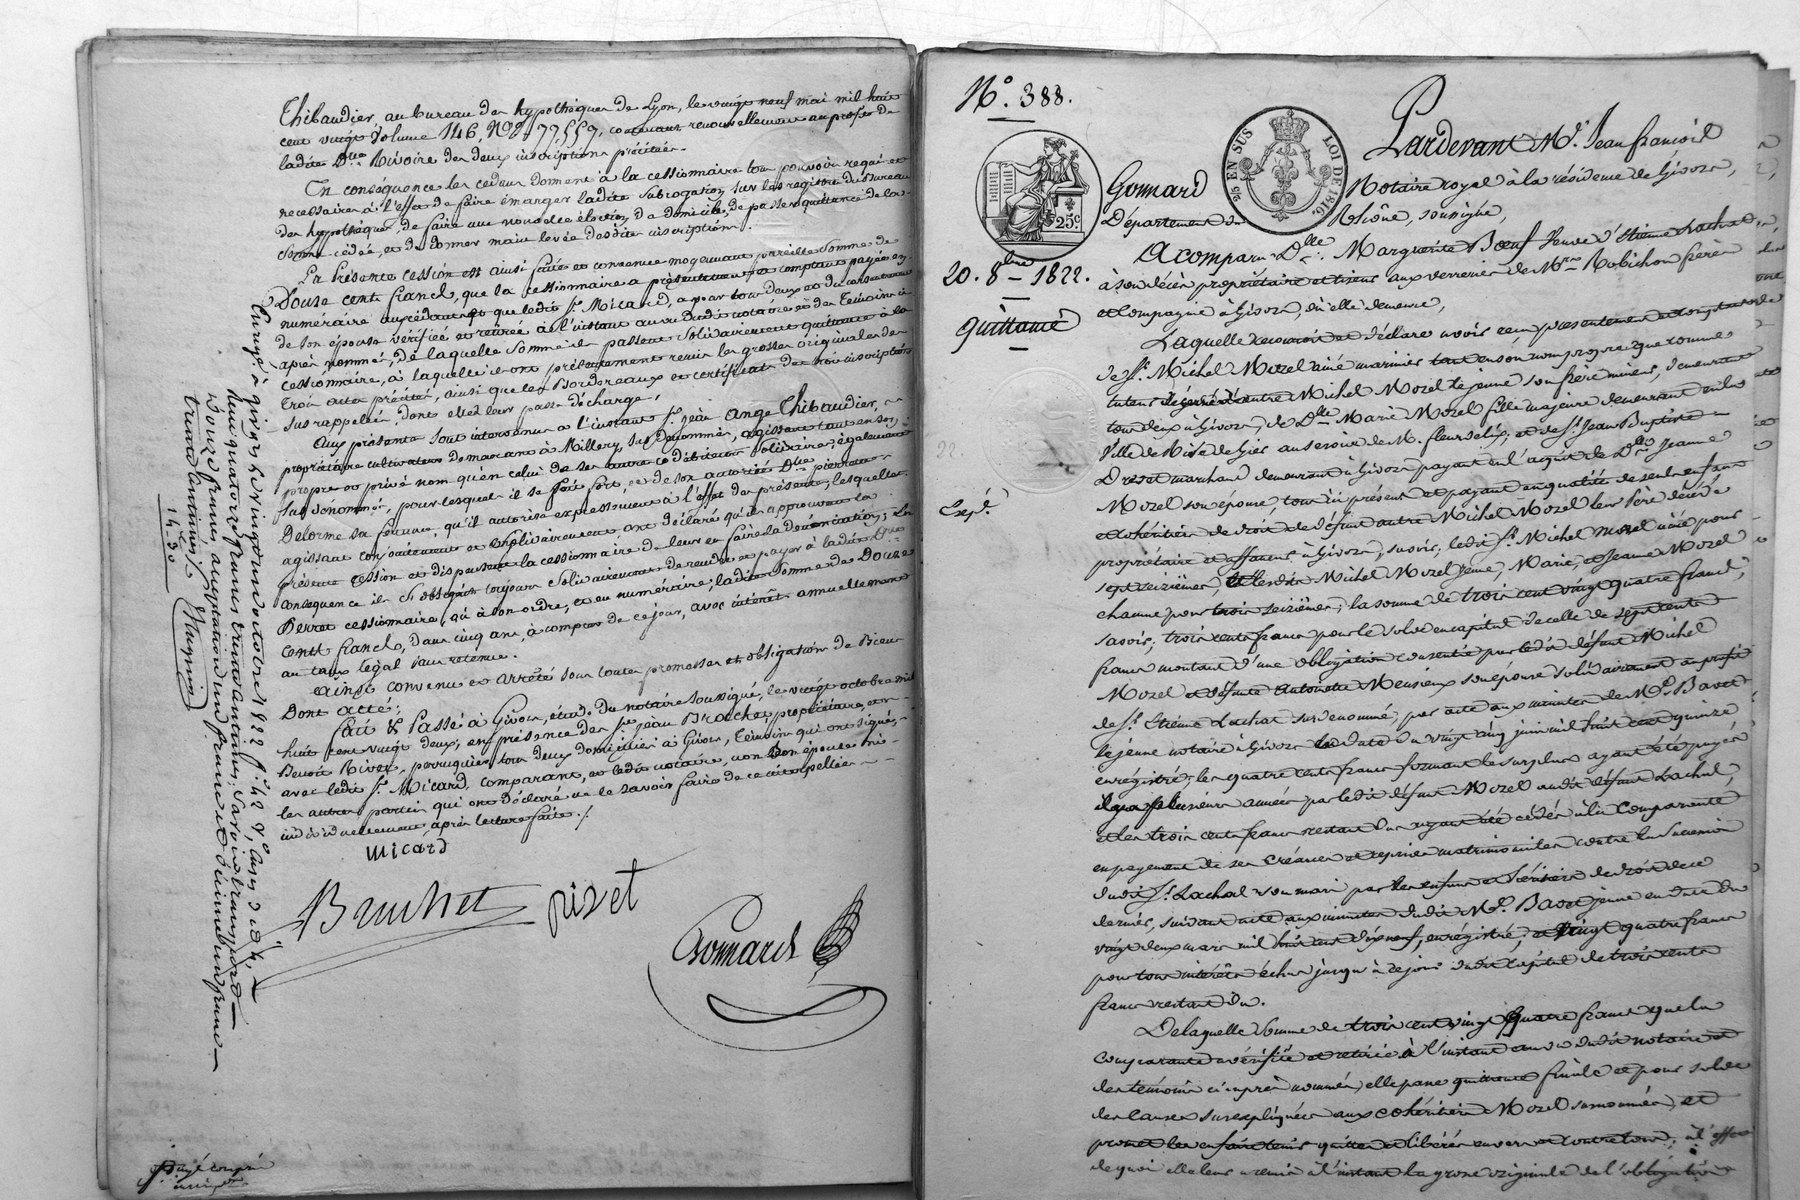 Thibaudier, au bureau des hypothèques de Lyon, le vingt neuf mai mil huit
cent vingt volume 146, N° 77559, contenant renouvellement au profit de
ladite D.lle Rivoire des deux inscriptions précitées.
En conséquence les cédeur donnent à la cessionnaire tout pouvoir requis et
nécessaire à l'effet de faire émarger ladite subrogation sur les registres du Bureau
des hypothèques, de faire une nouvelle élection de domicile, de passer quittance de la
somme cédée, et de donner main levée desdites inscriptions.
La présente cession est ainsi faite et convenue moyennant pareille somme de
Douze cents francs, que la cessionnaire a présentement et comptant payée en
numéraire auxcédants que ledit S.r Micard, a pour tous deux et du consentement
de son épouse vérifiée et retirée à l'instant au vu dudit notaire et des Témoins ci
après nommés, de laquelle somme ils passent solidairement quittance à la
cessionnaire, à laquelle ils ont présentement remis les grosses originales des
trois actes précités, ainsi que les Bordereaux et certificats des trois inscriptions
sus rappelés, dont elle leur passe décharge,
Aux présentes sont intervenus à l'instant S.r jean Ange Thibaudier,
propriétaire cultivateur demeurant à Millery, sus dénommé, agissant tant en son
propre et privé nom qu'en celui de ses autres codébiteurs solidaires, également
sus dénommés, pour lesquels il se fait fort, et de son autorité D.me pierrette
Delorme sa femme, qu'il autorise expressément à l'effet des présentes, lesquels
agissant conjointement et solidairement ont déclaré qu'ils approuvent la
présente cession et dispensent la cessionnaire de leur en faire la dénonciation; En
conséquence ils s'obligent toujours solidairement de rendre et payer à ladite D.lle
Perret cessionnaire, ou à son ordre, et en numéraire, ladite somme de Douze
cents francs, dans cinq ans, à compter de ce jour, avec intérêts annuellement
au taux légal sans retenue.
Ainsi convenu et arrêté sous toutes promesses et obligations de Biens
Dont acte;
fait & Passé à Givors, étude du notaire soussigné, le vingt octobre mil
huit cent vingt deux, en présence des S.rs jean Brachet, propriétaire, et
Benoit Rivet, perruquier, tous deux domiciliés à Givors, Témoins qui ont signés,
avec ledit S.r Micard, comparant, et ledit notaire, non son épouse ni
les autres parties qui ont déclaré ne le savoir faire de ce interpellées
individuellement, après lecture faite./.
Micard
Bruchet pivet
Gonnard
Enregé à givors le vingt un octobre 1822 f.° 42 v.° cases 3 et 4,
Reçu quatorze francs trente centimes, savoir transport
douze francs, acceptation un franc et dixième un franc
trente centimes
14.30
N°. 388.
25 EN SUS LOI DE 1816.
25.c
20. 8.bre 1822.
Quittance
Expé.
Pardevant M.e Jean François
Gonnard Notaire royal à la résidence de Givors,
Département du Rhône, soussigné,
A comparu D.lle Marguerite Bœuf Veuve d'Etienne Lachat
à son décès propriétaire et tiseur aux verreries de M.rs Robichon frères
et Compagnie à Givors, où elle demeure,
Laquelle reconnoit et déclare avoir reçu présentement et comptant
de S.r Michel Mozel ainé marinier tant en son nom propre que comme
tuteur de Michel Mozel le jeune son frère mineur, demeurant
tous deux à Givors, de D.lle Marie Mozel fille majeure demeurant en la
Ville de Rive de Gier au service de M. fleurdelix; et de S.r Jean Baptiste
Drevet marchand demeurant à Givors payant en l'acquit de D.lle Jeanne
Mozel son épouse, tous ici présents et payant en qualité de seuls enfans
et cohéritiers de droit de défunt autre Michel Mozel leur père décédé
propriétaire et affaneur à Givors; savoir, ledit S.r Michel Mozel ainé pour
sept seizièmes, et lesdits Michel Mozel jeune, Marie, et Jeanne Mozel
chacun pour trois seizièmes; la somme de trois cent vingt quatre francs,
savoir, trois cents francs pour le solde en capital de celle de sept cents
francs montant d'une obligation consentie par ledit défunt Michel
Mozel et défunte Antoinette Meusieux son épouse solidairement au profit
de S.r Etienne Lachat susdenommé, par acte aux minutes de M.e Bavet
le jeune notaire à Givors en date du vingt cinq juin mil huit cent quinze,
enregistré; les quatre cents francs formant le surplus ayant été payés
il y a plusieurs années par ledit défunt Mozel audit défunt Lachat,
et les trois cents francs restant dus ayant été cédés à la Comparante
en payement de ses créances et reprises matrimoniales contre la succession
dudit S.r Lachat son mari par les enfans et héritiers de droit de ce
dernier, suivant acte aux minutes dudit M.e Bavet jeune en date du
vingt deux mars mil huit cent dixneuf, enregistré; et Vingt quatre francs
pour tous intérêts échus jusqu'à ce jour dudit capital de trois cents
francs restant du.
De laquelle somme de trois cent vingt quatre francs que la
comparante a vérifiée et retirée à l'instant au vu dudit notaire et
des témoins ci après nommés, elle passe quittance finale et pour solde
des causes sus expliquées aux cohéritiers Mozel susnommés, et
promet les en faire tenir quittes et libérés envers et contre tous; à l'effet
de quoi elle leur a remis à l'instant la grosse originale de l'obligation